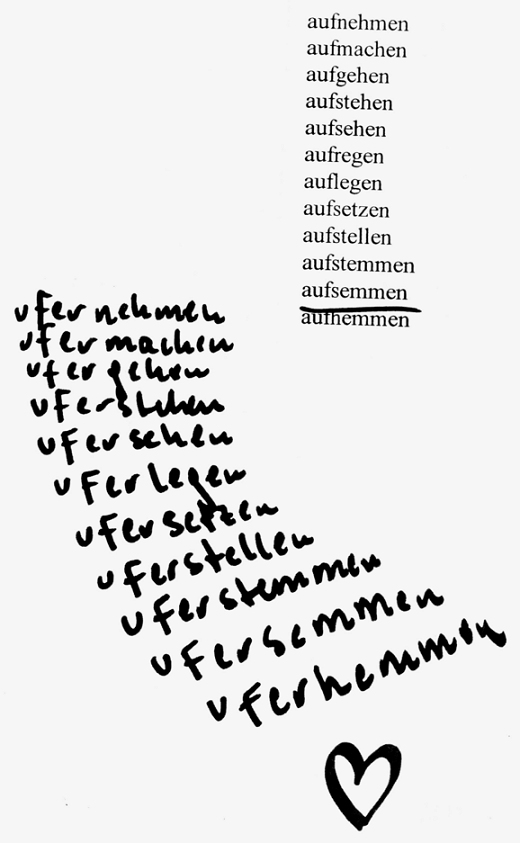 aufnehmen
aufmachen
aufgehen
aufstehen
aufsehen
aufregen
auflegen
aufsetzen
aufstellen
aufstemmen
aufsemmen
aufhemmen
ufernehmen
ufermachen
ufergehen
uferstehen
ufersehen
uferlegen
ufersetzen
uferstellen
uferstemmen
ufersemmen
uferhemmen